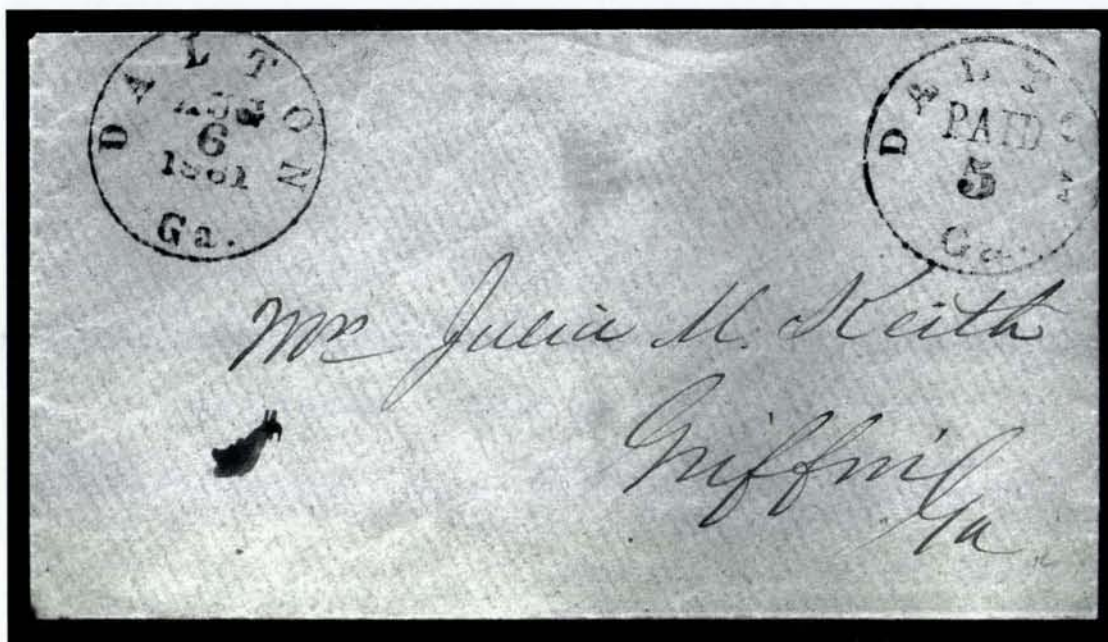 DALTON
AUG
6
1861
Ga.
DALTON
PAID
5
Ga.
Mrs Julia M. Keith
Griffin
Ga